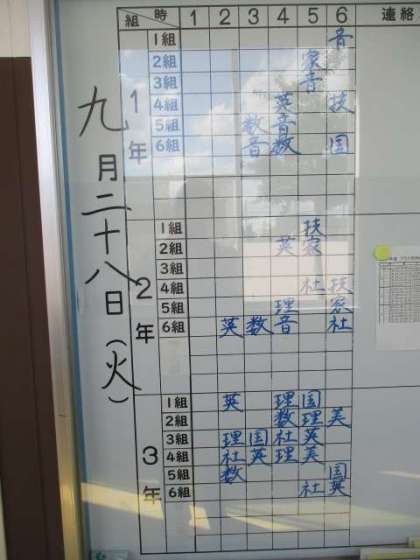 九月二十八日(火)
組 時 1 2 3 4 5 6 連絡
1年
1組 音
2組 家
3組 音
4組 英 技
5組 数 音
6組 音 数 国
2年
1組 技
2組 英 家
3組
4組 社 技
5組 理 家
6組 英 数 音 社
3年
1組 英 理 国
2組 数 理 美
3組 理 国 社 英
4組 社 英 理 美
5組 数 国
6組 社 英